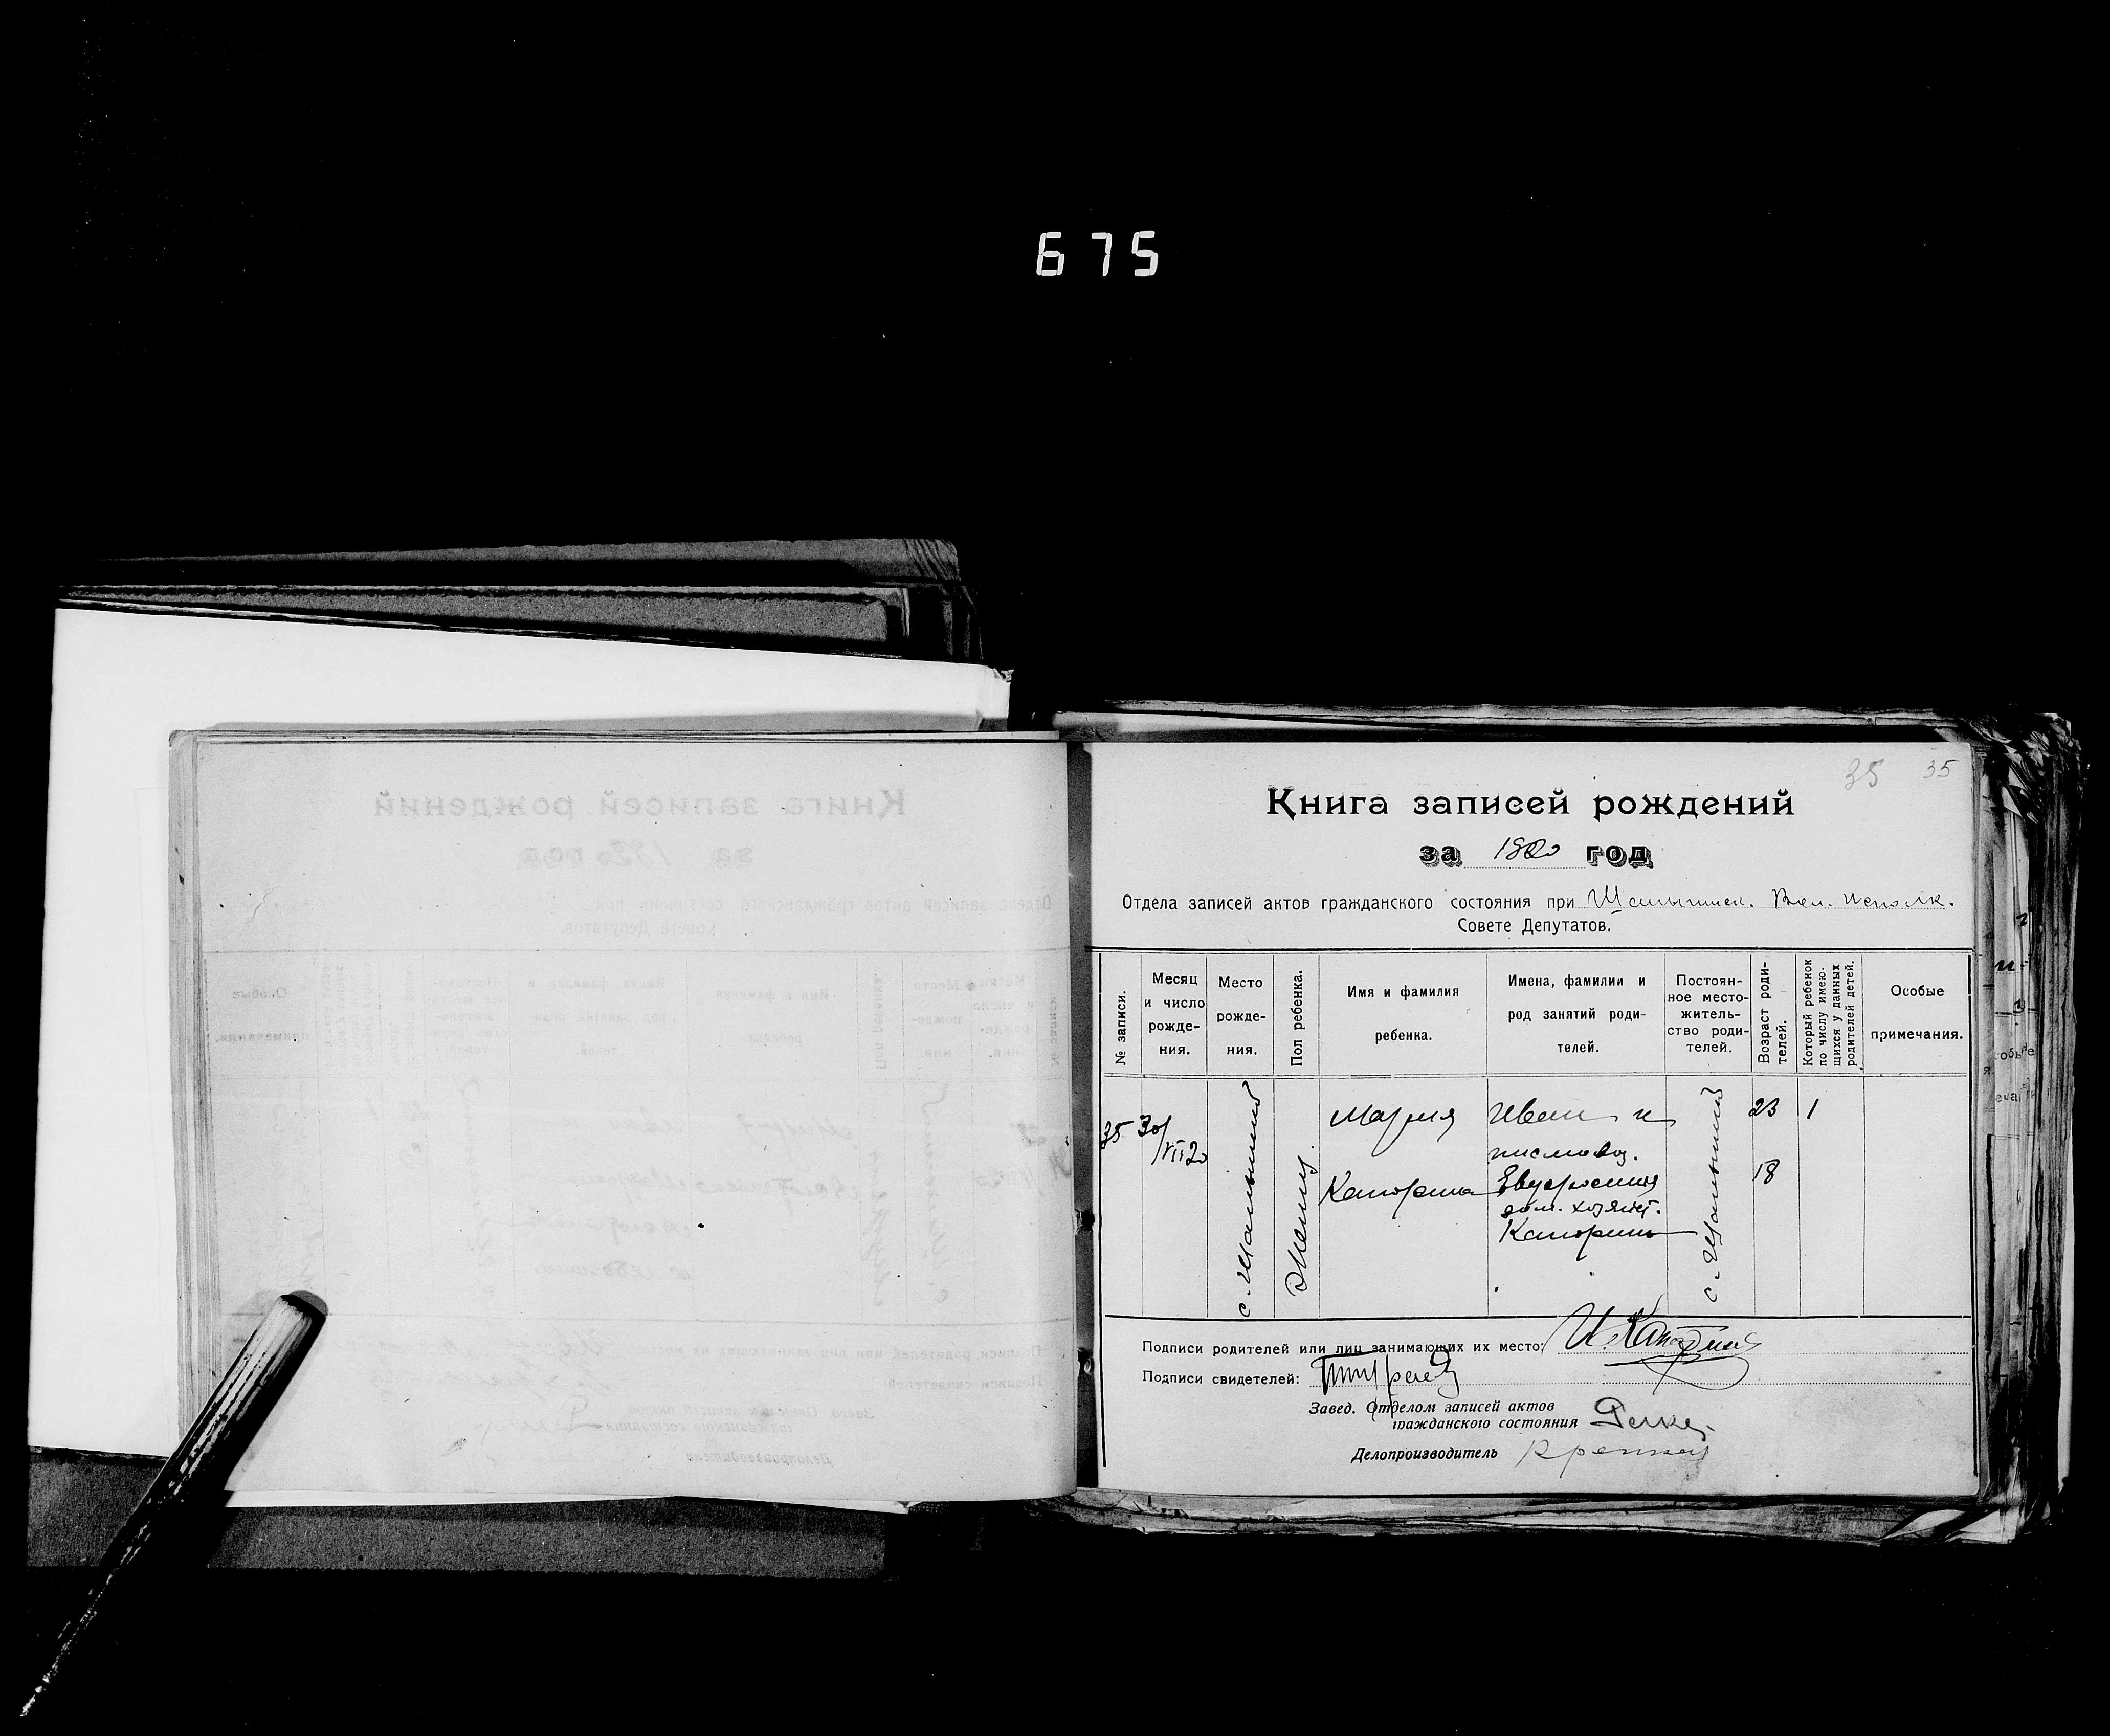 675
35 35
Книга записей рождений
за 1920 год
Отдела записей актов гражданского состояния при Вол. исполк.
Совете Депутатов.
№ записи.
Месяц и число рожде-
ния.
Место рожде-
ния.
Пол ребенка.
Имя и фамилия
ребенка.
Имена, фамилии и
род занятий роди-
телей.
Постоян-
ное место-
житель-
ство роди-
телей.
Возраст роди-
телей.
Который ребенок
по числу имею-
щихся у данных
родителей детей.
Особые
примечания.
35 30/VII 20
Женщ.
Мария
Капорина
Иван и
письмовод.
Евфросиния
дом. хозяйст.
Капорины
23
18
1
Подписи родителей или лиц занимающих их место: И. Капорин
Подписи свидетелей:
Завед. Отделом записей актов
гражданского состояния
Делопроизводитель